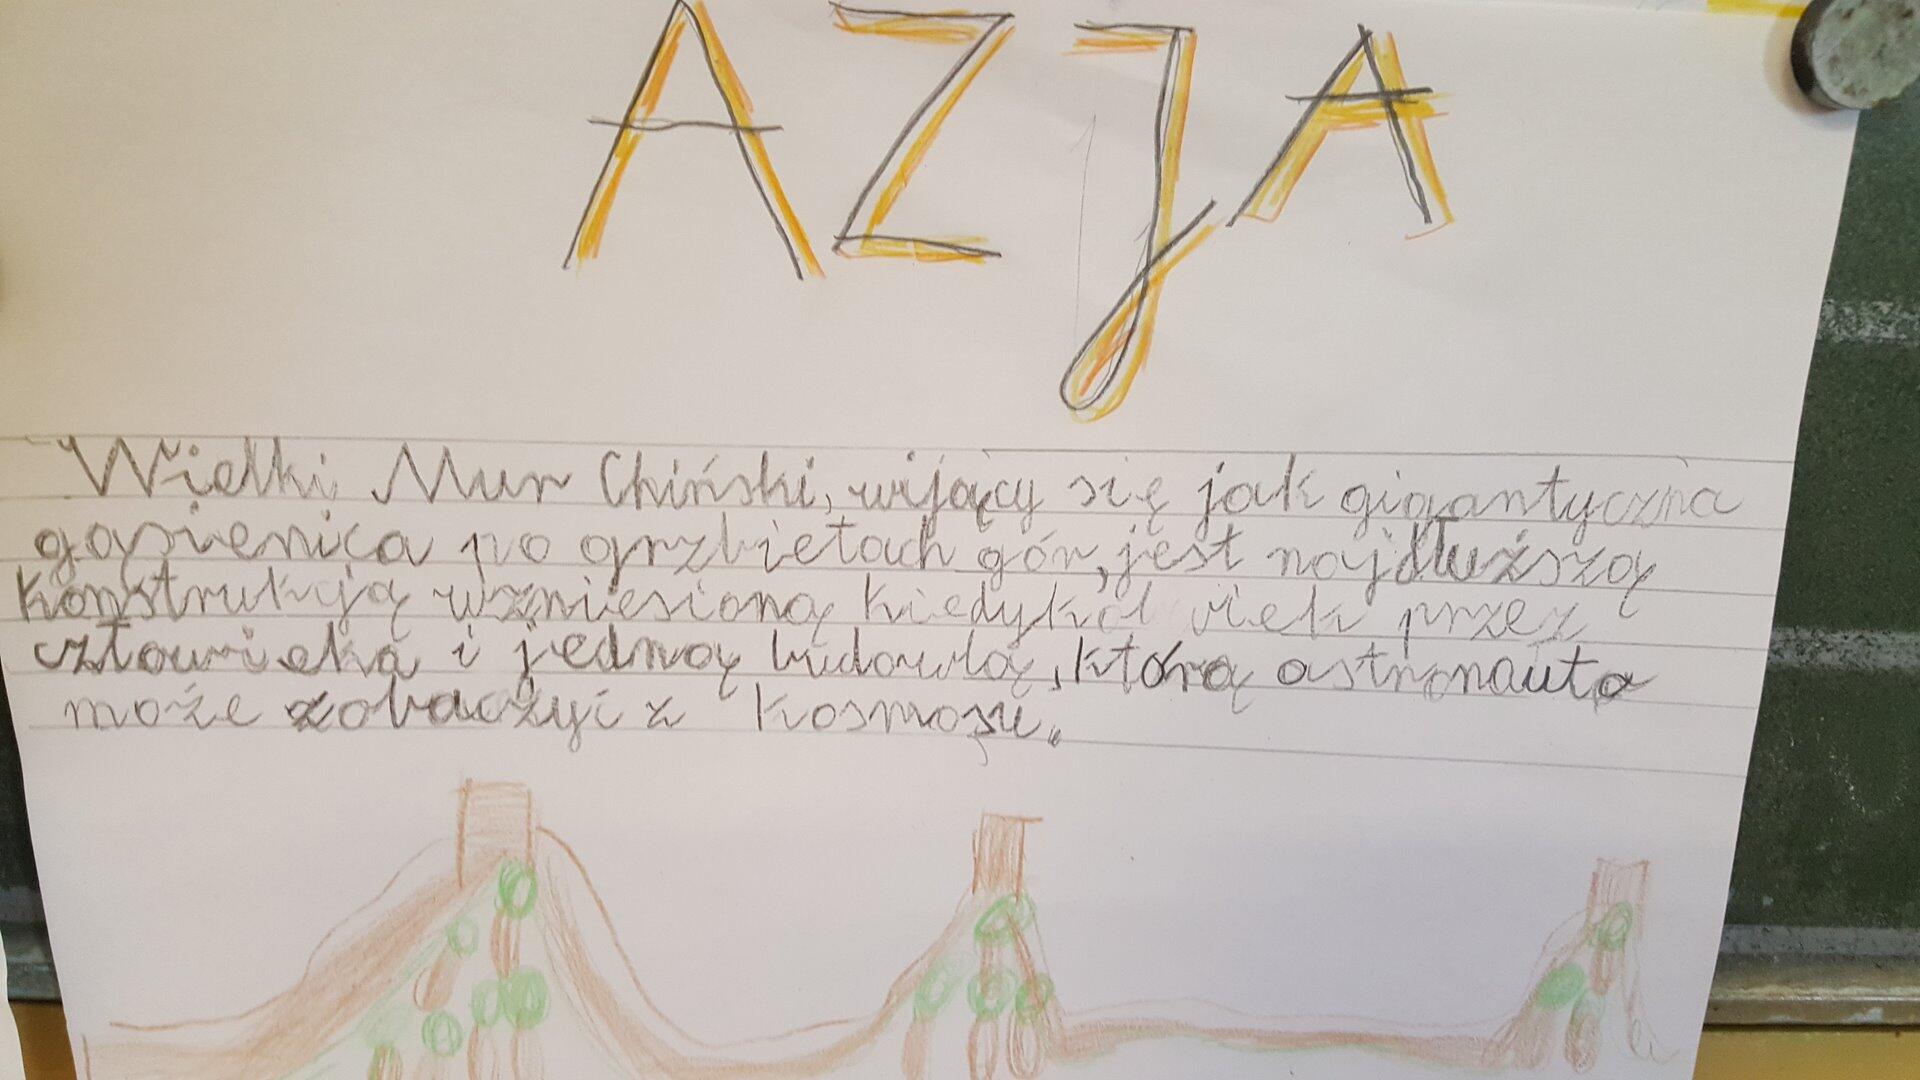 AZJA
Wielki Mur Chiński, wijący się jak gigantyczna
gąsienica po grzbietach gór, jest najdłuższą
konstrukcją wzniesioną kiedykolwiek przez
człowieka i jedną budowlą, którą astronauta
może zobaczyć z kosmosu.